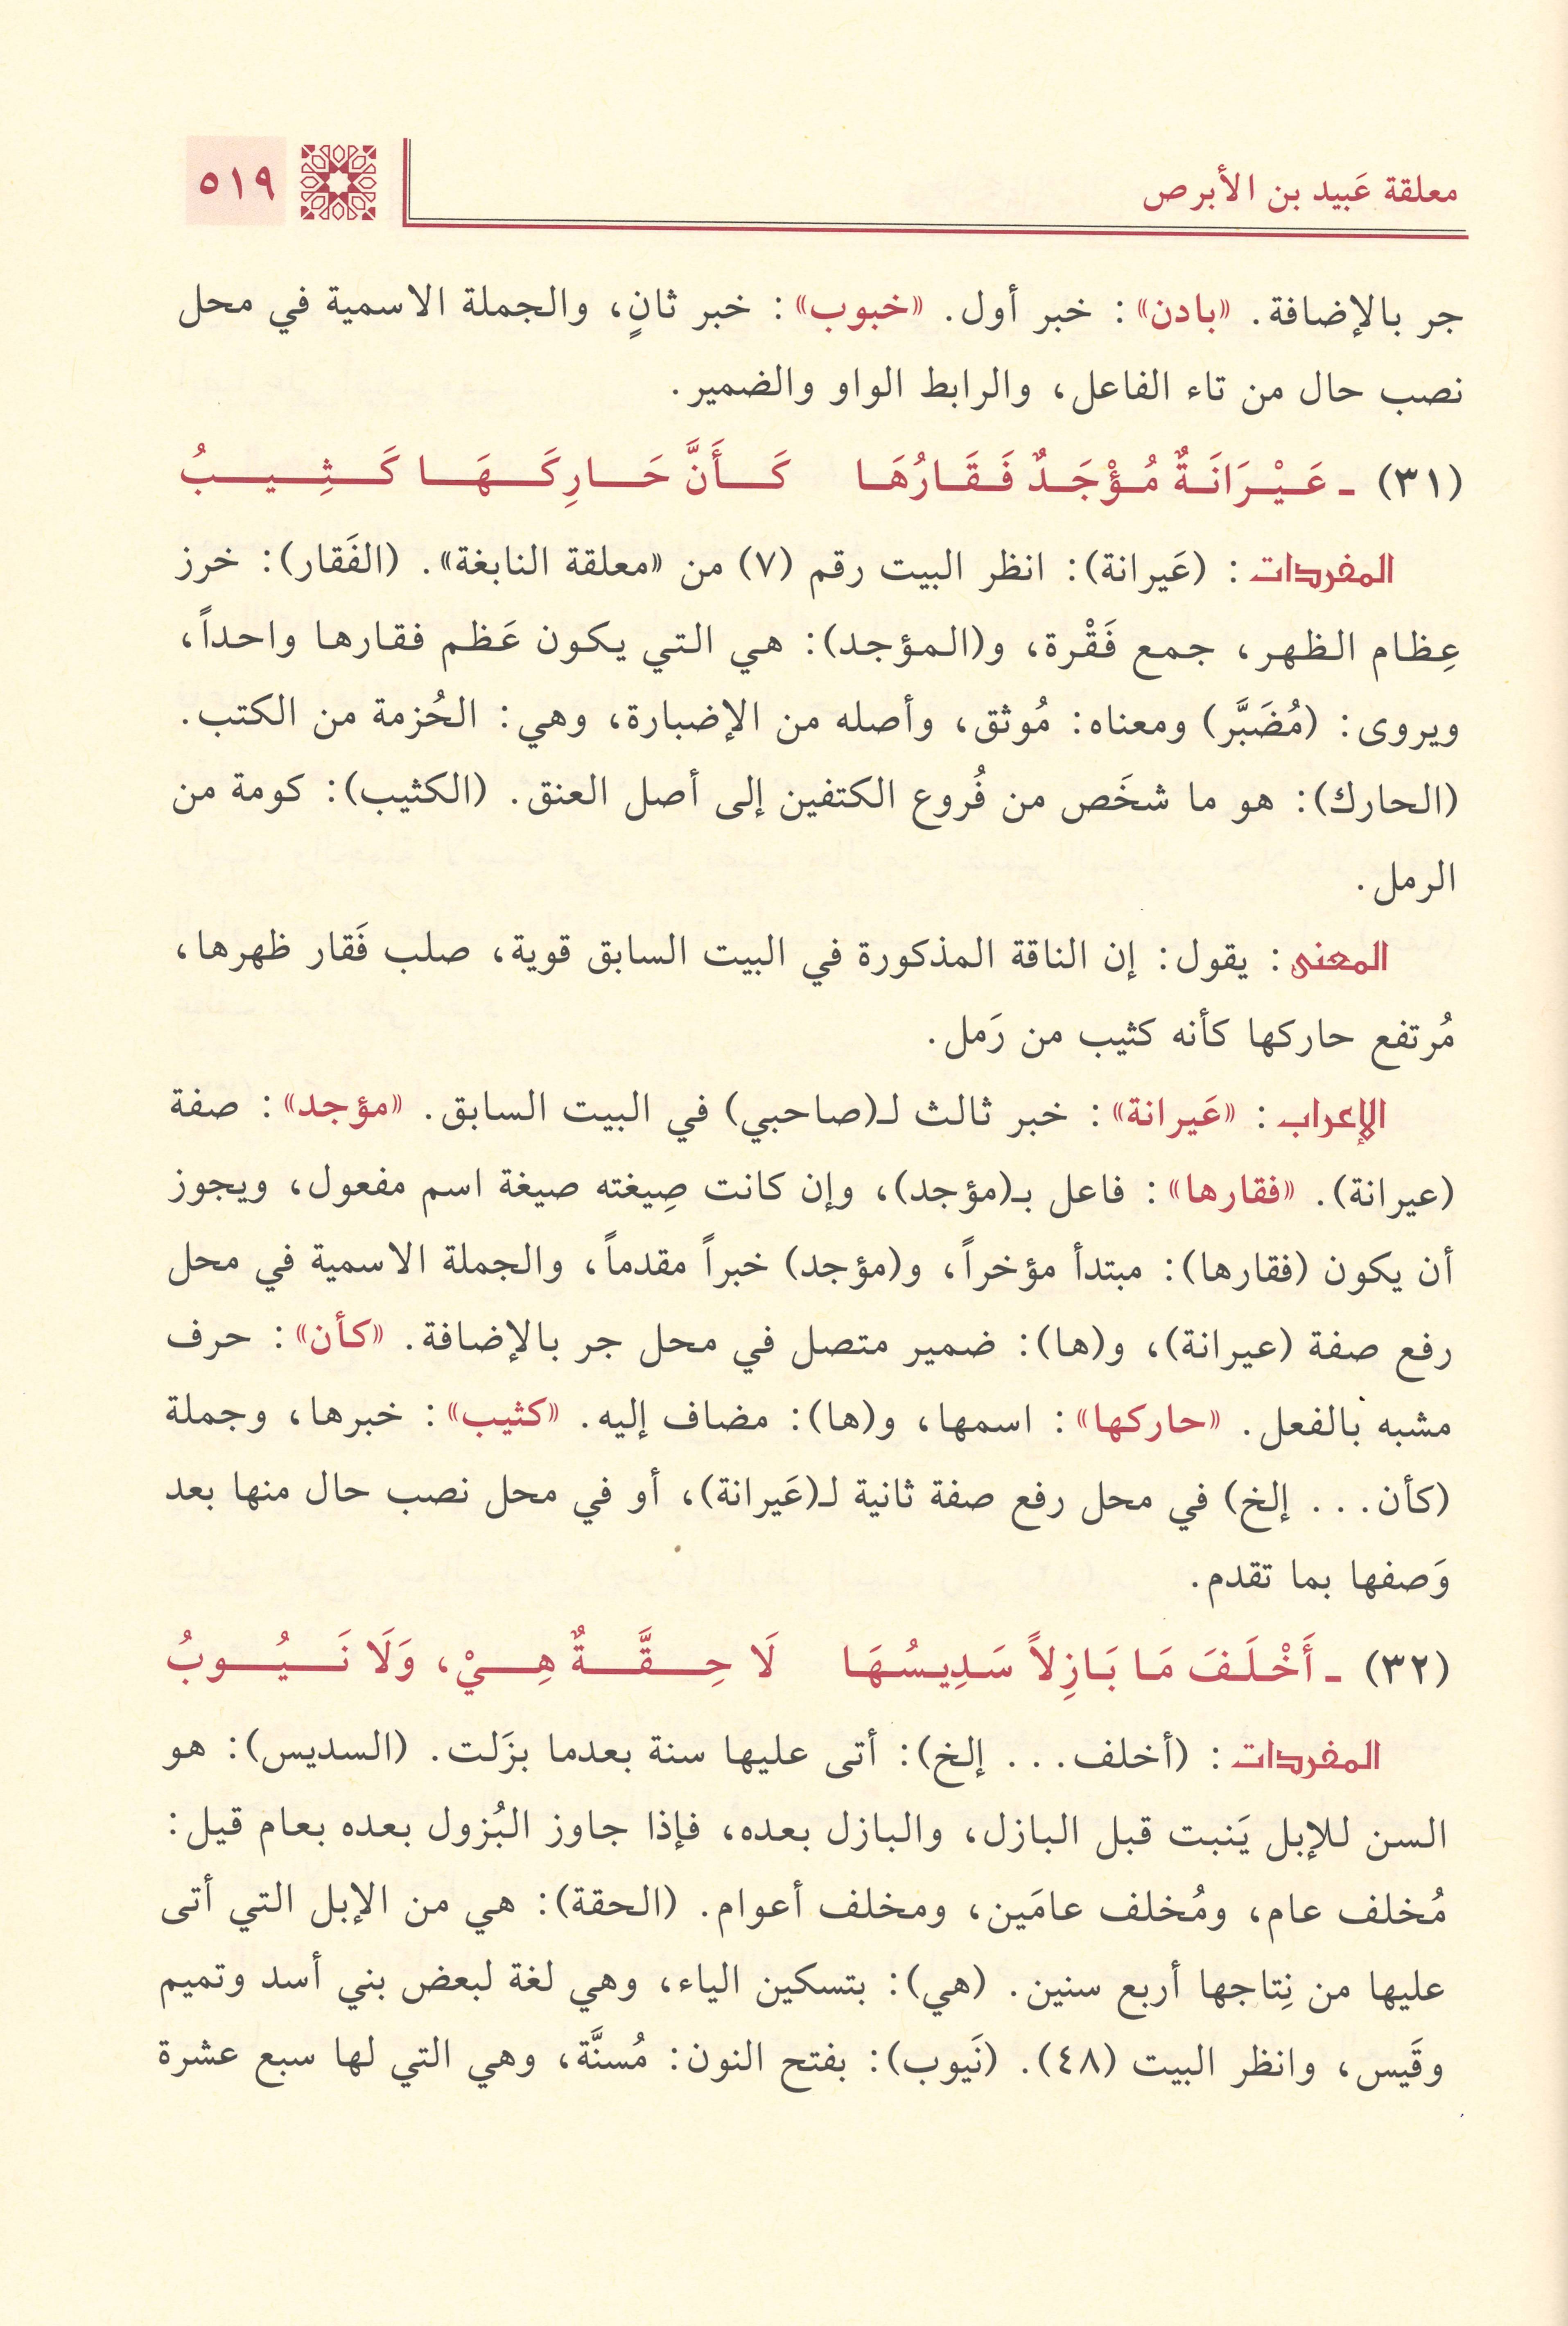 معلقة عَبيد بن الأبرص
٥١٩
جر بالإضافة. «بادن»: خبر أول. «خبوب»: خبر ثانٍ، والجملة الاسمية في محل
نصب حال من تاء الفاعل، والرابط الواو والضمير.
(٣١) ـ عَيْرَانَةٌ مُؤْجَدٌ فَقَارُهَا كَأَنَّ حَارِكَهَا كَثِيبُ
المفردات: (عَيرانة): انظر البيت رقم (٧) من «معلقة النابغة». (الفَقار): خرز
عِظام الظهر، جمع فَقْرة، و(المؤجد): هي التي يكون عَظم فقارها واحداً،
ويروى: (مُضَبَّر) ومعناه: مُوثق، وأصله من الإضبارة، وهي: الحُزمة من الكتب.
(الحارك): هو ما شخَص من فُروع الكتفين إلى أصل العنق. (الكثيب): كومة من
الرمل.
المعنى: يقول: إن الناقة المذكورة في البيت السابق قوية، صلب فَقار ظهرها،
مُرتفع حاركها كأنه كثيب من رَمل.
الإعراب: «عَيرانة»: خبر ثالث لـ(صاحبي) في البيت السابق. «مؤجد»: صفة
(عيرانة). «فقارها»: فاعل بـ(مؤجد)، وإن كانت صِيغته صيغة اسم مفعول، ويجوز
أن يكون (فقارها): مبتدأ مؤخراً، و(مؤجد) خبراً مقدماً، والجملة الاسمية في محل
رفع صفة (عيرانة)، و(ها): ضمير متصل في محل جر بالإضافة. «كأن»: حرف
مشبه بالفعل. «حاركها»: اسمها، و(ها): مضاف إليه. «كثيب»: خبرها، وجملة
(كأن... إلخ) في محل رفع صفة ثانية لـ(عَيرانة)، أو في محل نصب حال منها بعد
وَصفها بما تقدم.
(٣٢) ـ أَخْلَفَ مَا بَازِلاً سَدِيسُهَا لَا حِقَّةٌ هِيْ، وَلَا نَيُوبُ
المفردات: (أخلف... إلخ): أتى عليها سنة بعدما بزَلت. (السديس): هو
السن للإبل يَنبت قبل البازل، والبازل بعده، فإذا جاوز البُزول بعده بعام قيل:
مُخلف عام، ومُخلف عامَين، ومخلف أعوام. (الحقة): هي من الإبل التي أتى
عليها من نِتاجها أربع سنين. (هي): بتسكين الياء، وهي لغة لبعض بني أسد وتميم
وقَيس، وانظر البيت (٤٨). (نَيوب): بفتح النون: مُسنَّة، وهي التي لها سبع عشرة